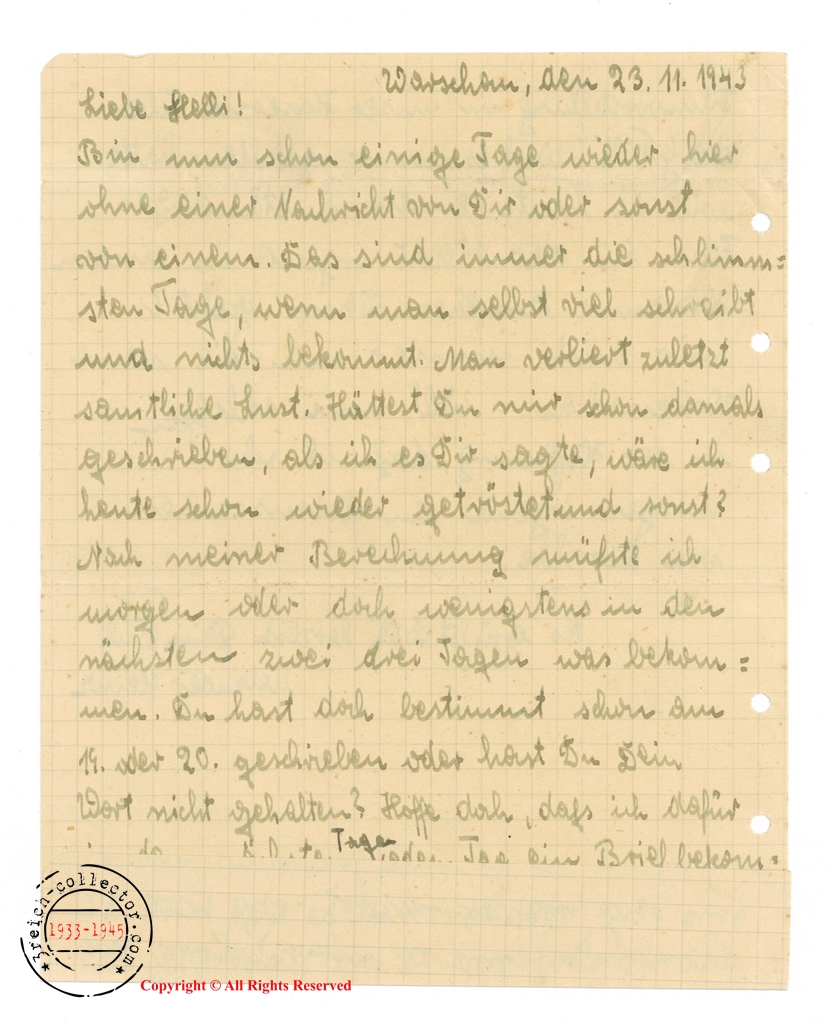 Warschau, den 23. 11. 1943
Liebe Helli!
Bin nun schon einige Tage wieder hier
ohne einer Nachricht von Dir oder sonst
von einem. Das sind immer die schlimm=
sten Tage, wenn man selbst viel schreibt
und nichts bekommt. Man verliert zuletzt
samtliche Lust. Hättest Du mir schon damals
geschrieben, als ich es Dir sagte, wäre ich
heute schon wieder getröstet und sonst?
Nach meiner Berechnung müßte ich
morgen oder doch wenigstens in den
nächsten zwei drei Tagen was bekom=
men. Du hast doch bestimmt schon am
19. oder 20. geschrieben oder hast Du Dein
Wort nicht gehalten? Hoffe doch, daß ich dafür
Tagen
jeden Tag ein Brief bekom=
3reich-collector.com
1933-1945
Copyright © All Rights Reserved